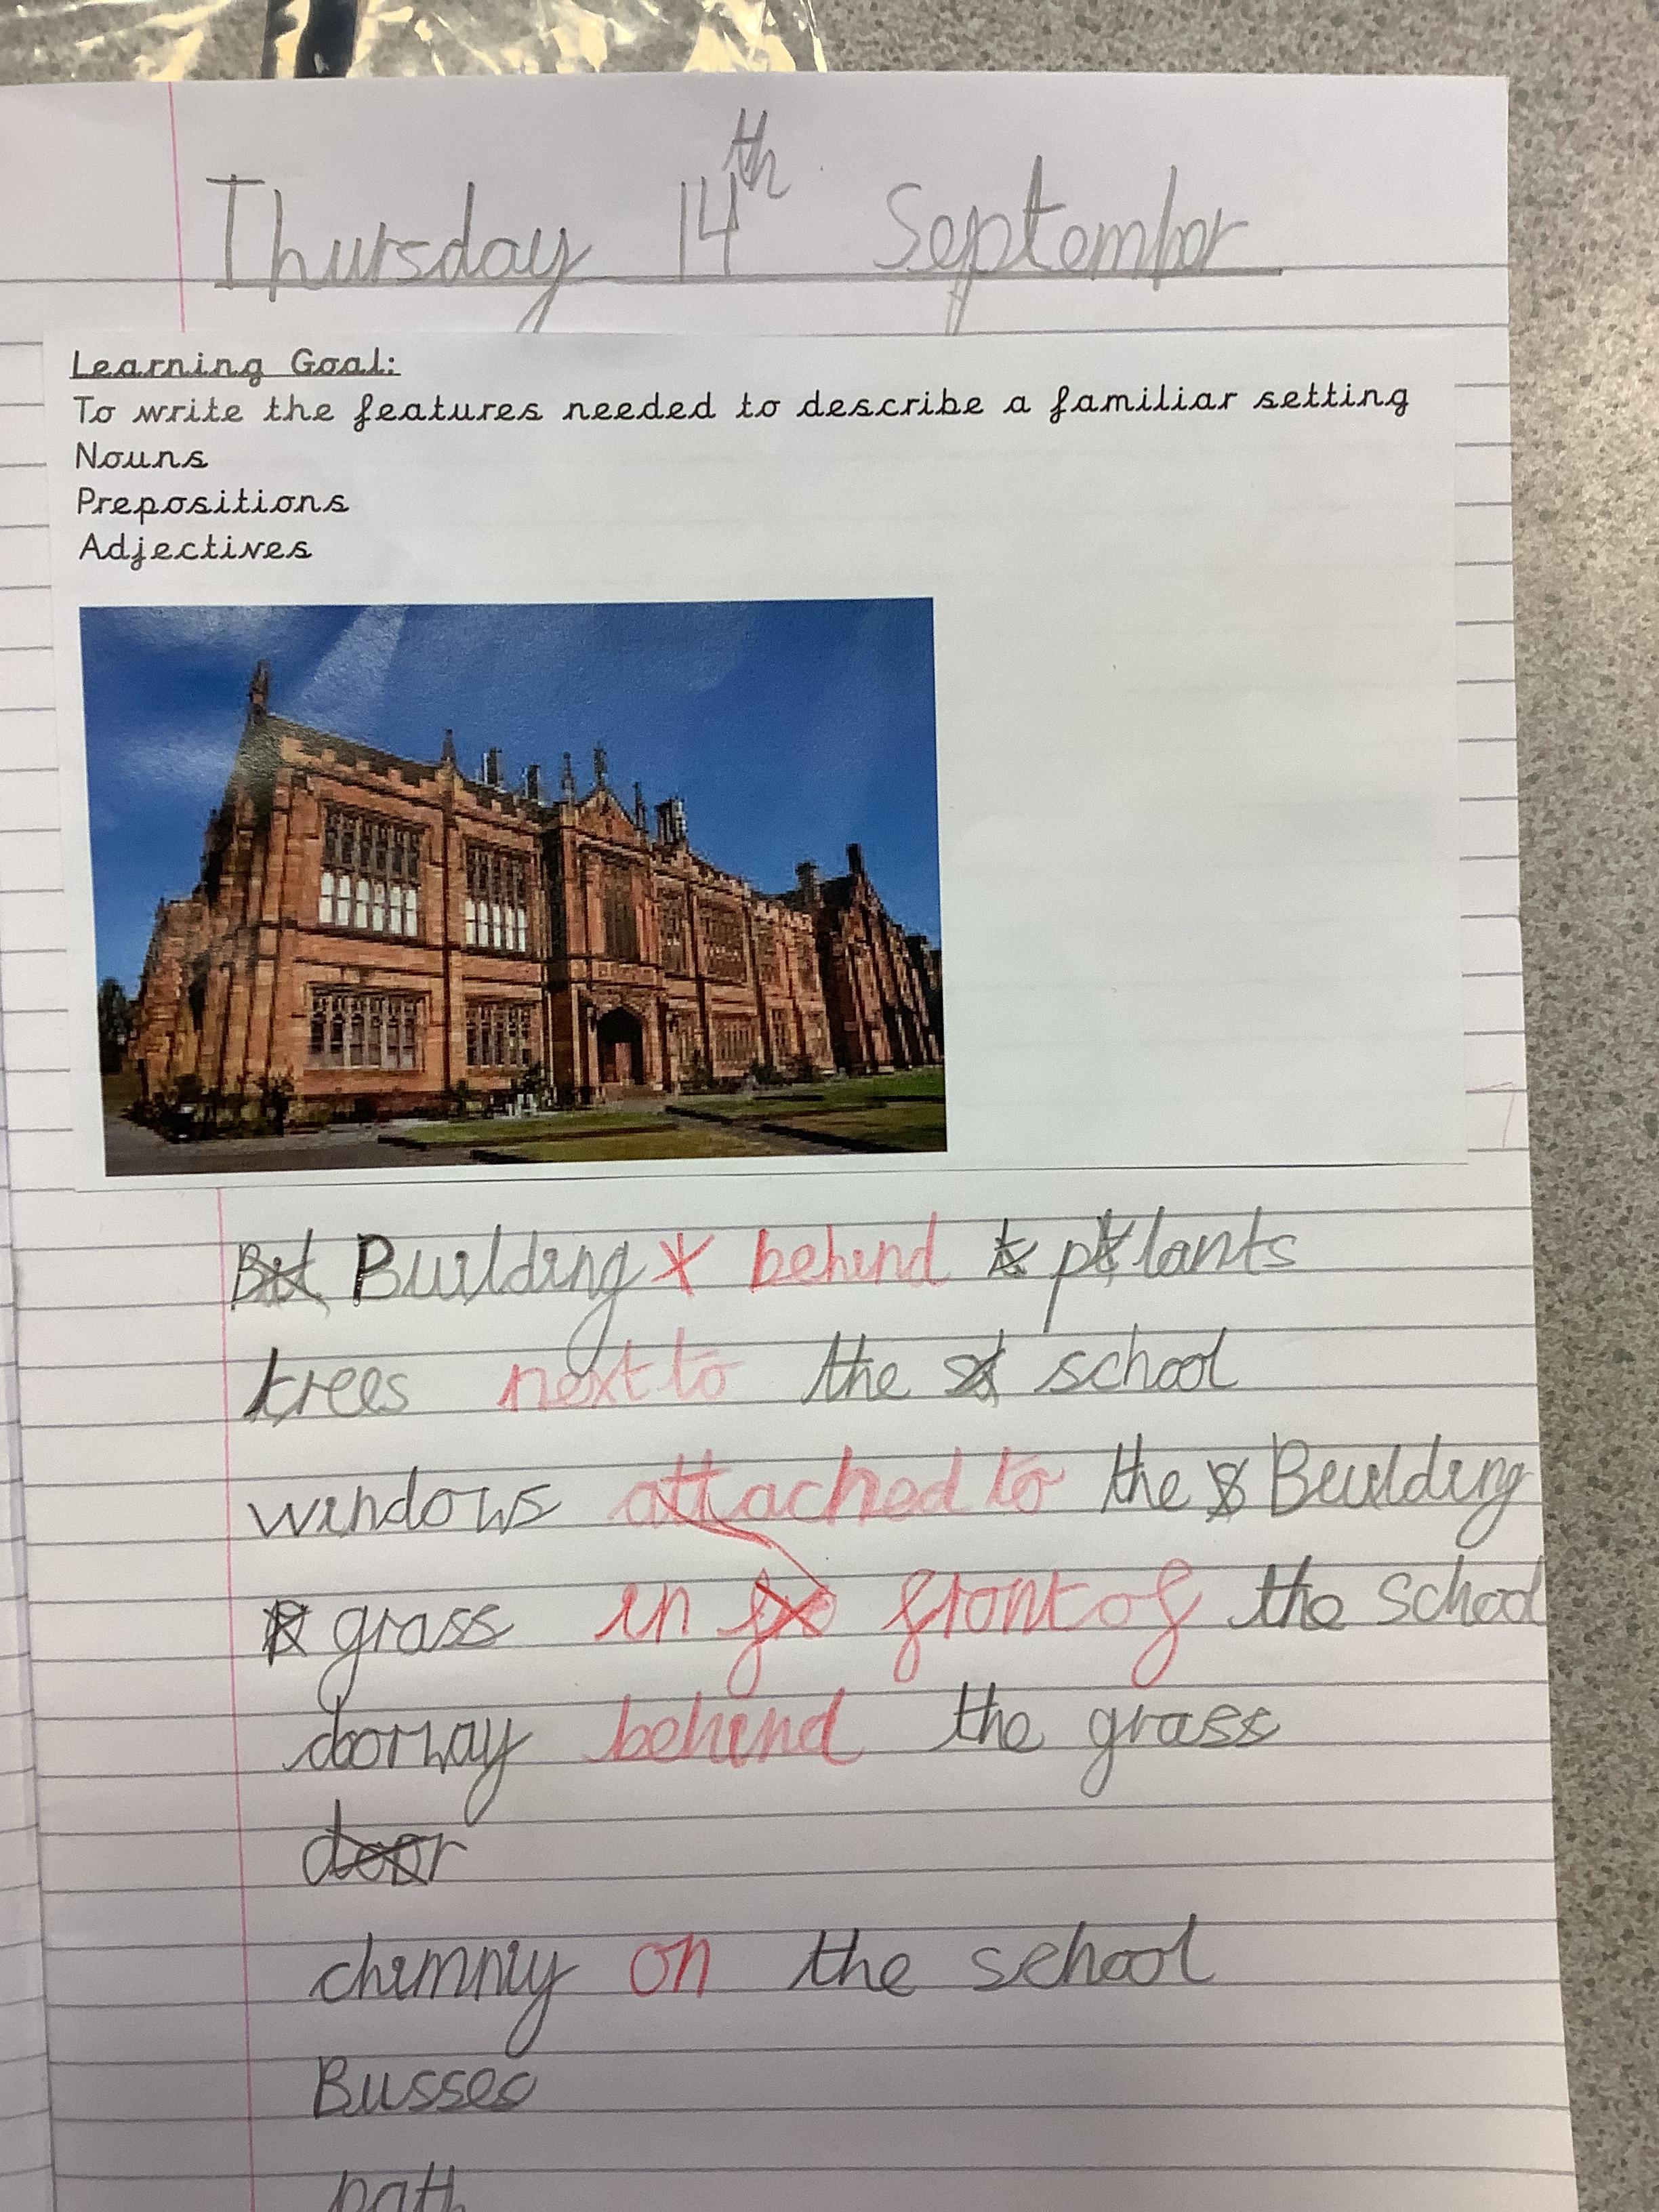 Thursday 14th September
Learning Goal:
To write the features needed to describe a familiar setting
Nouns
Prepositions
Adjectives
Building behind plants
trees next to the school
windows attached to the Beulding
grass in front of the school
dorway behind the grass
door
chimniy on the school
Busses
path